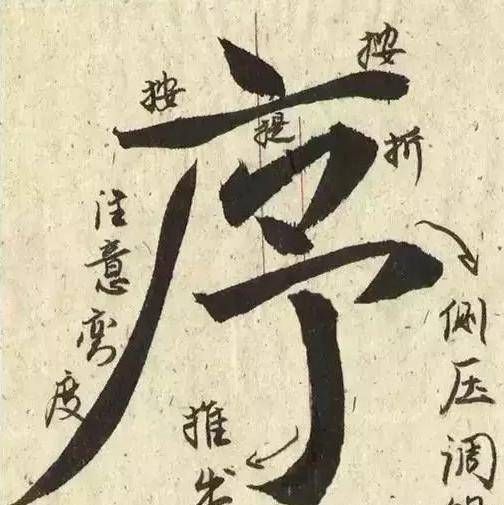 序
按
按
提
折
注意弯度
侧压调
推出